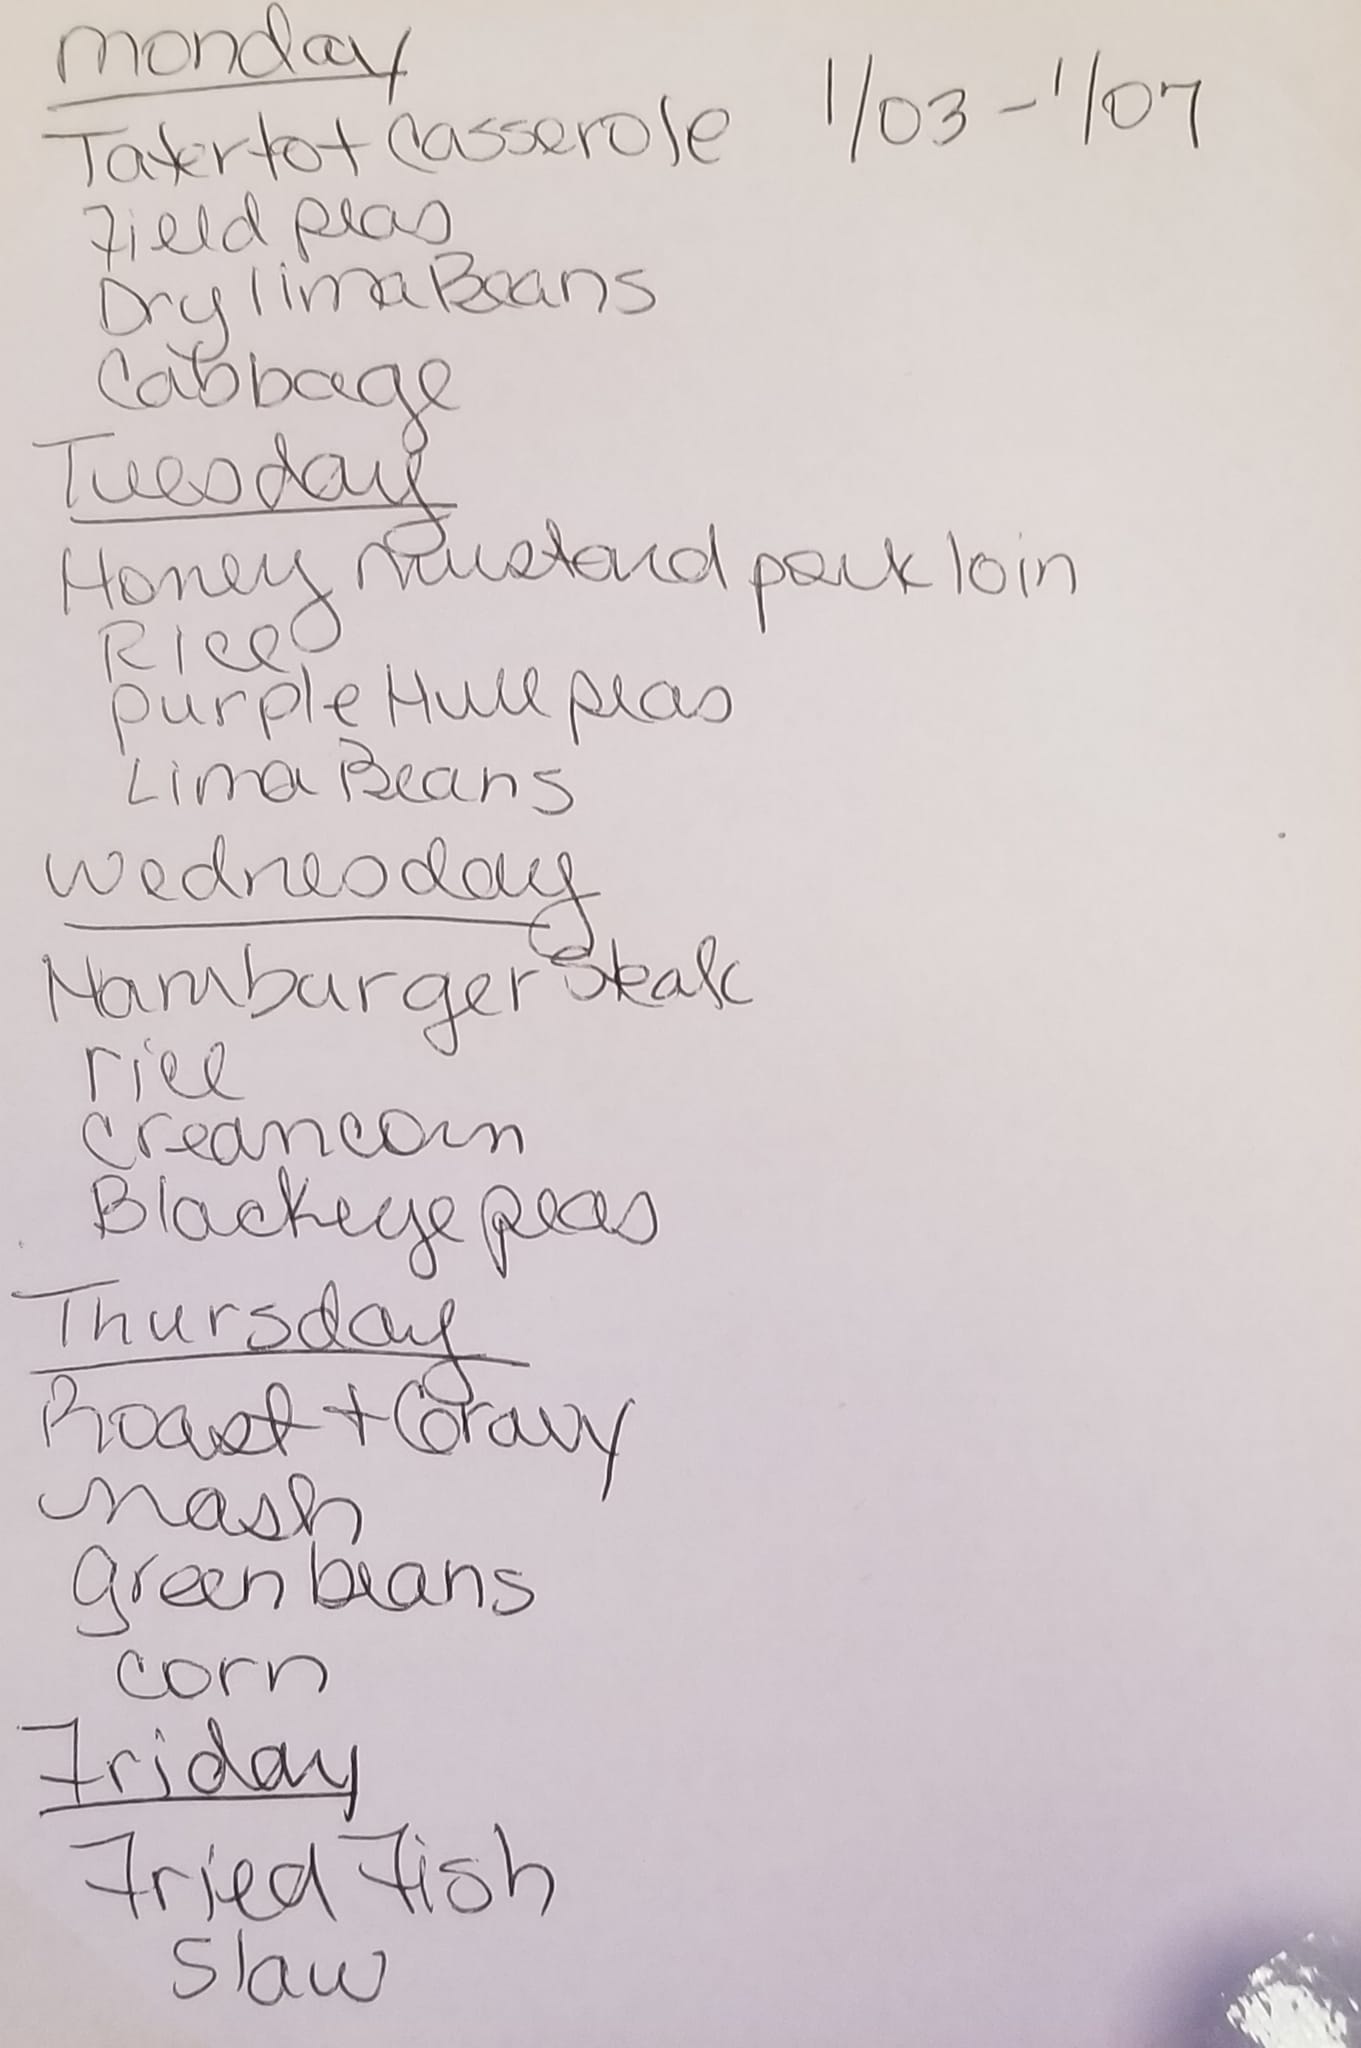 monday
1/03 - 1/07
Tatertot Casserole
Field peas
Dry lima Beans
Cabbage
Tuesday
Honey Mustard pork loin
Rice
purple Hull peas
Lima Beans
Wednesday
Hamburger Steak
rice
cream corn
Blackeye peas
Thursday
Roast + Gravy
mash
green beans
corn
Friday
Fried Fish
Slaw